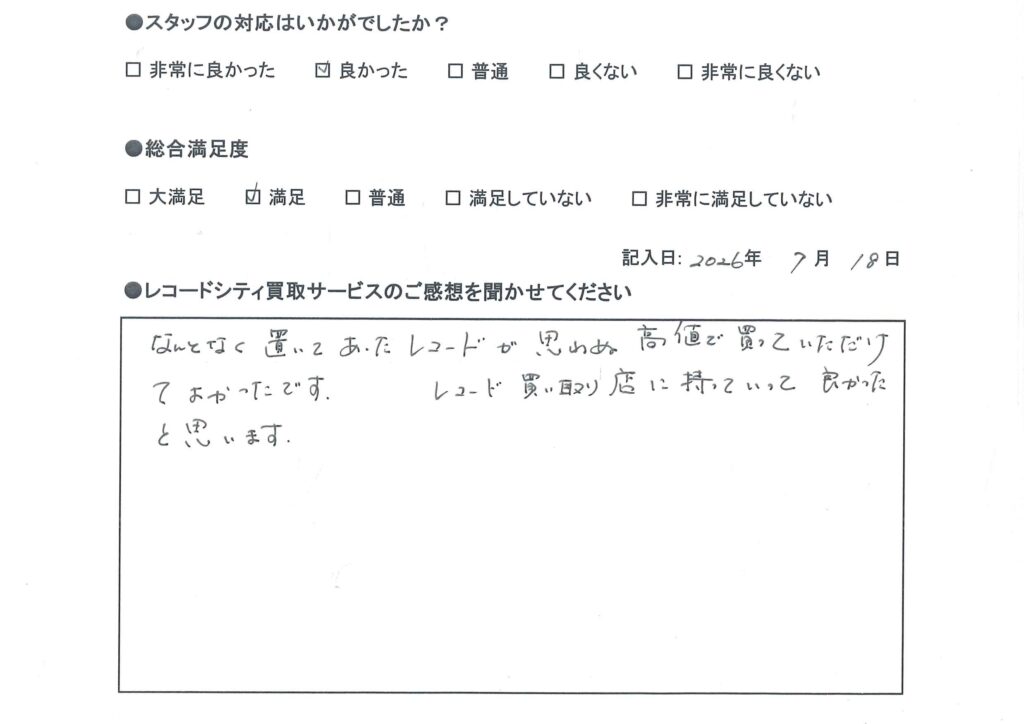 ●スタッフの対応はいかがでしたか？
□ 非常に良かった ☑ 良かった □ 普通 □ 良くない □ 非常に良くない
●総合満足度
□ 大満足 ☑ 満足 □ 普通 □ 満足していない □ 非常に満足していない
記入日: 2026年 7月 18日
●レコードシティ買取サービスのご感想を聞かせてください
なんとなく置いてあったレコードが思わぬ高値で買っていただけ
てよかったです. レコード買い取り店に持っていって良かった
と思います.